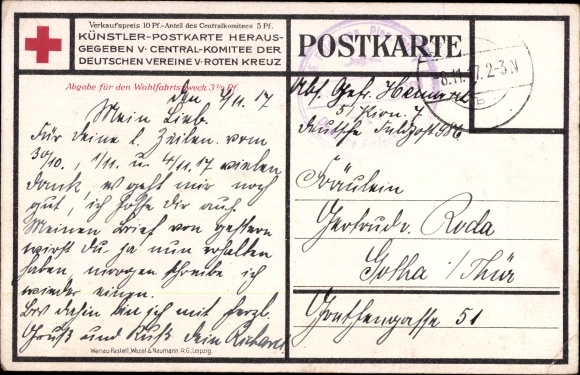 Verkaufspreis 10 Pf.-Anteil des Centralkomitees 5 Pf.
KÜNSTLER-POSTKARTE HERAUS-
GEGEBEN V. CENTRAL-KOMITEE DER
DEUTSCHEN VEREINE V. ROTEN KREUZ
Abgabe für den Wohlfahrtszweck 3½ Pf
POSTKARTE
8.11.17.2-3N
den 7/11. 17
Mein Lieb.
Für deine l. Zeilen vom
30/10., 1/11. u. 4/11.17 vielen
Dank, es geht mir noch
gut, ich hoffe dir auch.
Meinen Brief von gestern
wirst du ja nun erhalten
haben, morgen schreibe ich
wieder einen.
Bis dahin bin ich mit herzl.
Gruß und Kuß dein Richard.
Abs. Gefr.
5/ Kion. 7
Deutsche Feldpost 986
Fräulein
Gertrude Roda
Gotha i/Thür
51
Wenau-Pastell, Wezel & Naumann A.G., Leipzig.